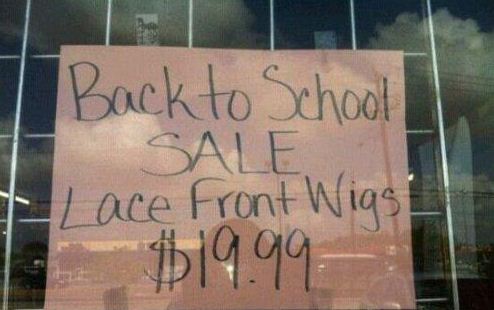 Back to School
SALE
Lace Front Wigs
$19.99